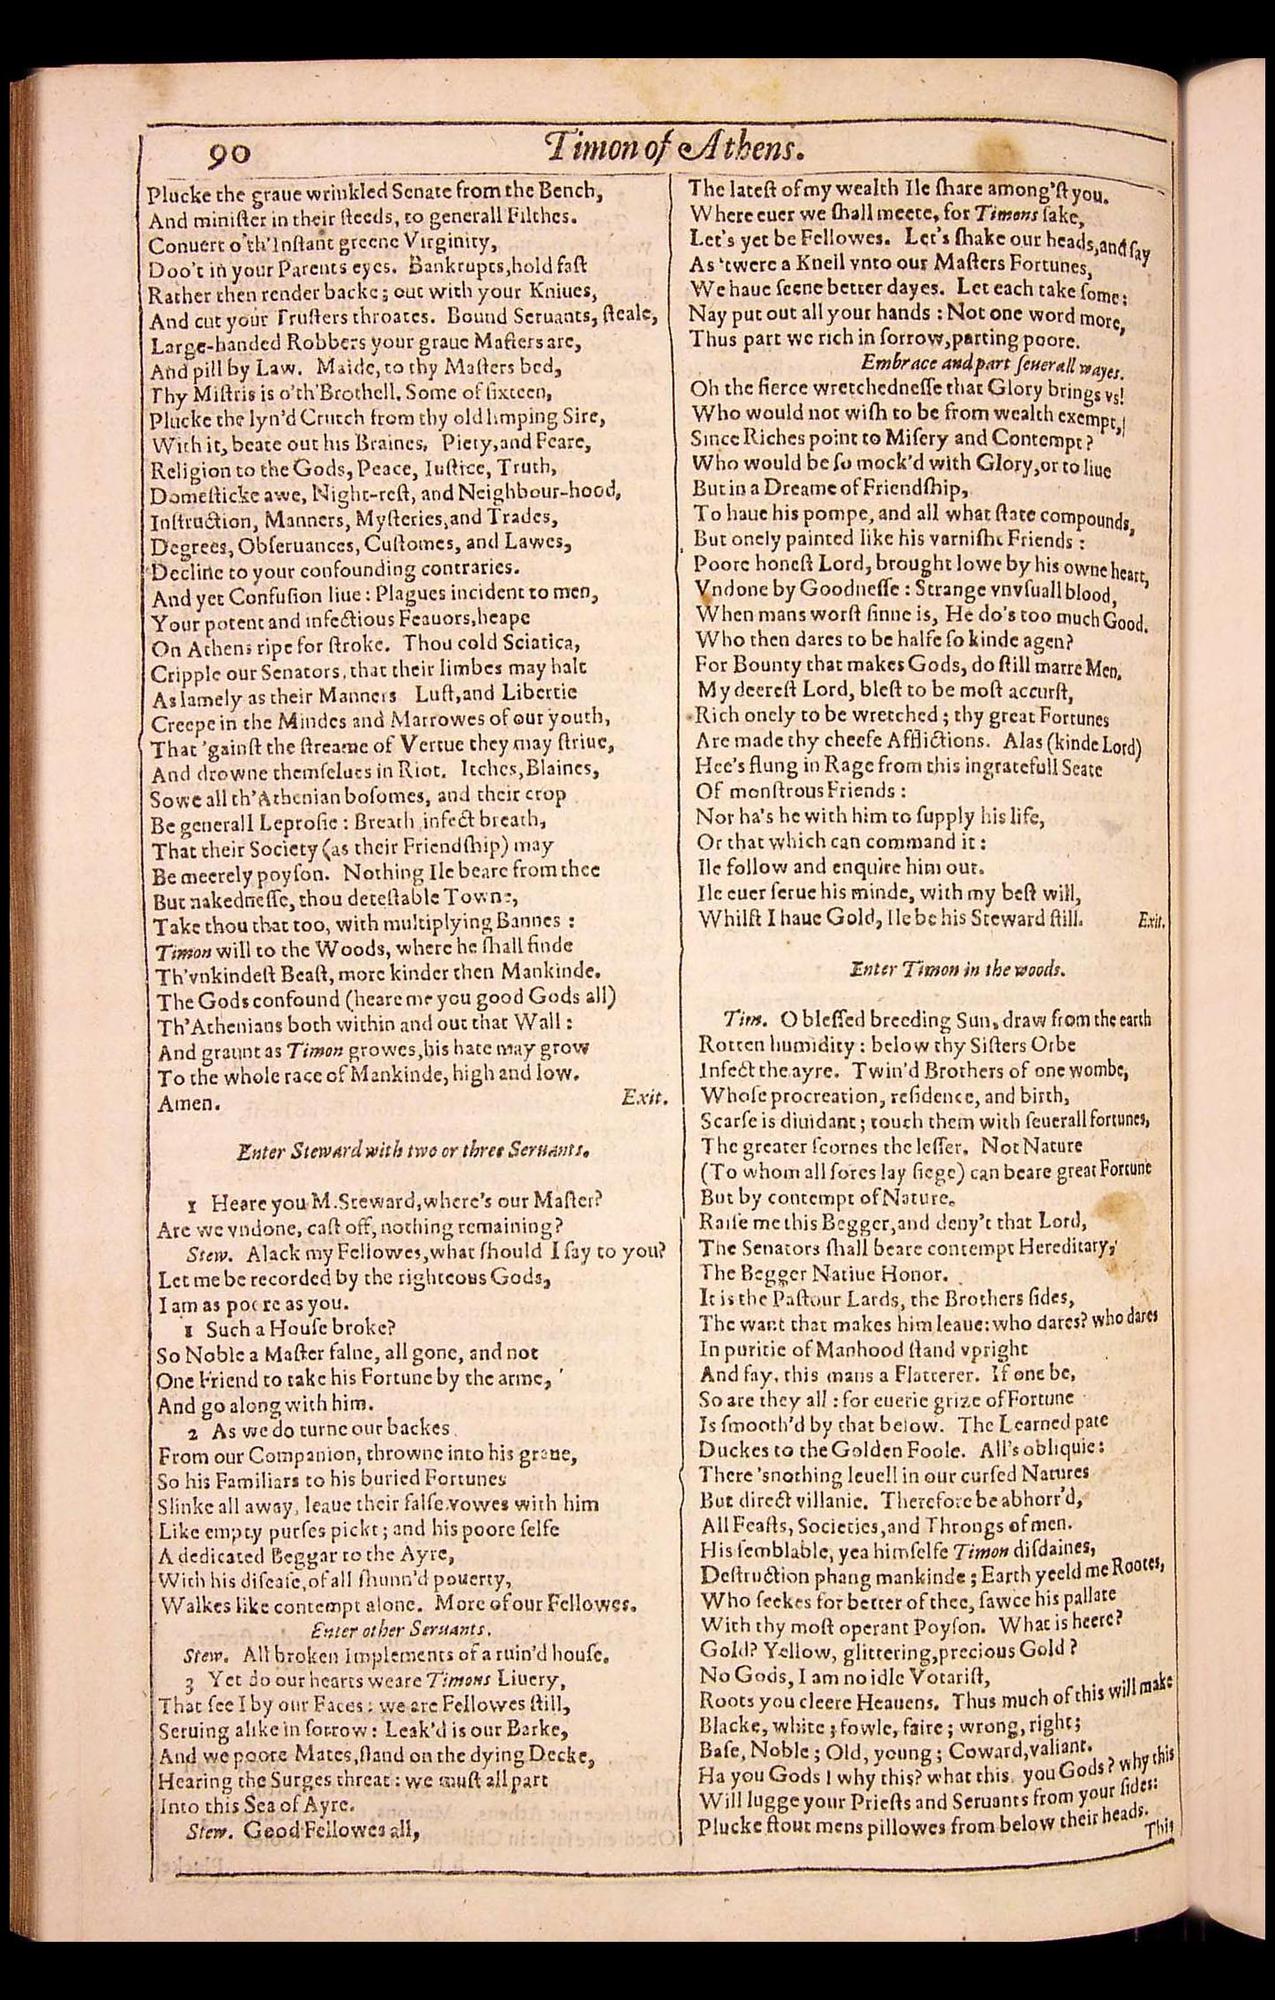 90
Timon of Athens.
Plucke the graue wrinkled Senate from the Bench,
And miniſter in their ſteeds, to generall Filthes.
Conuert o'th'Inſtant greene Virginity,
Doo't in your Parents eyes. Bankrupts, hold faſt
Rather then render backe; out with your Kniues,
And cut your Truſters throates. Bound Seruants, ſteale,
Large-handed Robbers your graue Maſters are,
And pill by Law. Maide, to thy Maſters bed,
Thy Miſtris is o'th'Brothell. Some of ſixteen,
Plucke the lyn'd Crutch from thy old limping Sire,
With it, beate out his Braines, Piety, and Feare,
Religion to the Gods, Peace, Iuſtice, Truth,
Domeſticke awe, Night-reſt, and Neighbour-hood,
Inſtruction, Manners, Myſteries, and Trades,
Degrees, Obſeruances, Cuſtomes, and Lawes,
Decline to your confounding contraries.
And yet Confuſion liue: Plagues incident to men,
Your potent and infectious Feauors, heape
On Athens ripe for ſtroke. Thou cold Sciatica,
Cripple our Senators, that their limbes may halt
As lamely as their Manners Luſt, and Libertie
Creepe in the Mindes and Marrowes of our youth,
That 'gainſt the ſtreame of Vertue they may ſtriue,
And drowne themſelues in Riot. Itches, Blaines,
Sowe all th'Athenian boſomes, and their crop
Be generall Leproſie: Breath, infect breath,
That their Society (as their Friendſhip) may
Be meerely poyſon. Nothing Ile beare from thee
But nakedneſſe, thou deteſtable Towne,
Take thou that too, with multiplying Bannes:
Timon will to the Woods, where he ſhall finde
Th'vnkindeſt Beaſt, more kinder then Mankinde.
The Gods confound (heare me you good Gods all)
Th'Athenians both within and out that Wall:
And graunt as Timon growes, his hate may grow
To the whole race of Mankinde, high and low.
Amen. Exit.
Enter Steward with two or three Seruants.
1 Heare you M. Steward, where's our Maſter?
Are we vndone, caſt off, nothing remaining?
Stew. Alack my Fellowes, what ſhould I ſay to you?
Let me be recorded by the righteous Gods,
I am as poore as you.
1 Such a Houſe broke?
So Noble a Maſter falne, all gone, and not
One Friend to take his Fortune by the arme,
And go along with him.
2 As we do turne our backes
From our Companion, throwne into his graue,
So his Familiars to his buried Fortunes
Slinke all away, leaue their falſe vowes with him
Like empty purſes pickt; and his poore ſelfe
A dedicated Beggar to the Ayre,
With his diſeaſe, of all ſhunn'd pouerty,
Walkes like contempt alone. More of our Fellowes.
Enter other Seruants.
Stew. All broken Implements of a ruin'd houſe.
3 Yet do our hearts weare Timons Liuery,
That ſee I by our Faces: we are Fellowes ſtill,
Seruing alike in ſorrow: Leak'd is our Barke,
And we poore Mates, ſtand on the dying Decke,
Hearing the Surges threat: we muſt all part
Into this Sea of Ayre.
Stew. Good Fellowes all,
The lateſt of my wealth Ile ſhare among'ſt you.
Where euer we ſhall meete, for Timons ſake,
Let's yet be Fellowes. Let's ſhake our heads, and ſay
As 'twere a Knell vnto our Maſters Fortunes,
We haue ſeene better dayes. Let each take ſome:
Nay put out all your hands: Not one word more,
Thus part we rich in ſorrow, parting poore.
Embrace and part ſeuerall wayes.
Oh the fierce wretchedneſſe that Glory brings vs!
Who would not wiſh to be from wealth exempt,
Since Riches point to Miſery and Contempt?
Who would be ſo mock'd with Glory, or to liue
But in a Dreame of Friendſhip,
To haue his pompe, and all what ſtate compounds,
But onely painted like his varniſht Friends:
Poore honeſt Lord, brought lowe by his owne heart,
Vndone by Goodneſſe: Strange vnvſuall blood,
When mans worſt ſinne is, He do's too much Good.
Who then dares to be halfe ſo kinde agen?
For Bounty that makes Gods, do ſtill marre Men.
My deereſt Lord, bleſt to be moſt accurſt,
Rich onely to be wretched; thy great Fortunes
Are made thy cheefe Afflictions. Alas (kinde Lord)
Hee's flung in Rage from this ingratefull Seate
Of monſtrous Friends:
Nor ha's he with him to ſupply his life,
Or that which can command it:
Ile follow and enquire him out.
Ile euer ſerue his minde, with my beſt will,
Whilſt I haue Gold, Ile be his Steward ſtill. Exit.
Enter Timon in the woods.
Tim. O bleſſed breeding Sun, draw from the earth
Rotten humidity: below thy Siſters Orbe
Infect the ayre. Twin'd Brothers of one wombe,
Whoſe procreation, reſidence, and birth,
Scarſe is diuidant; touch them with ſeuerall fortunes,
The greater ſcornes the leſſer. Not Nature
(To whom all ſores lay ſiege) can beare great Fortune
But by contempt of Nature.
Raiſe me this Begger, and deny't that Lord,
The Senators ſhall beare contempt Hereditary,
The Begger Natiue Honor.
It is the Paſtour Lards, the Brothers ſides,
The want that makes him leaue: who dares? who dares
In puritie of Manhood ſtand vpright
And ſay, this mans a Flatterer. If one be,
So are they all: for euerie grize of Fortune
Is ſmooth'd by that below. The Learned pate
Duckes to the Golden Foole. All's obliquie:
There 'snothing leuell in our curſed Natures
But direct villanie. Therefore be abhorr'd,
All Feaſts, Societies, and Throngs of men.
His ſemblable, yea himſelfe Timon diſdaines,
Deſtruction phang mankinde; Earth yeeld me Rootes,
Who ſeekes for better of thee, ſawce his pallate
With thy moſt operant Poyſon. What is heere?
Gold? Yellow, glittering, precious Gold?
No Gods, I am no idle Votariſt,
Roots you cleere Heauens. Thus much of this will make
Blacke, white; fowle, faire; wrong, right;
Baſe, Noble; Old, young; Coward, valiant.
Ha you Gods! why this? what this, you Gods? why this
Will lugge your Prieſts and Seruants from your ſides:
Plucke ſtout mens pillowes from below their heads.
This